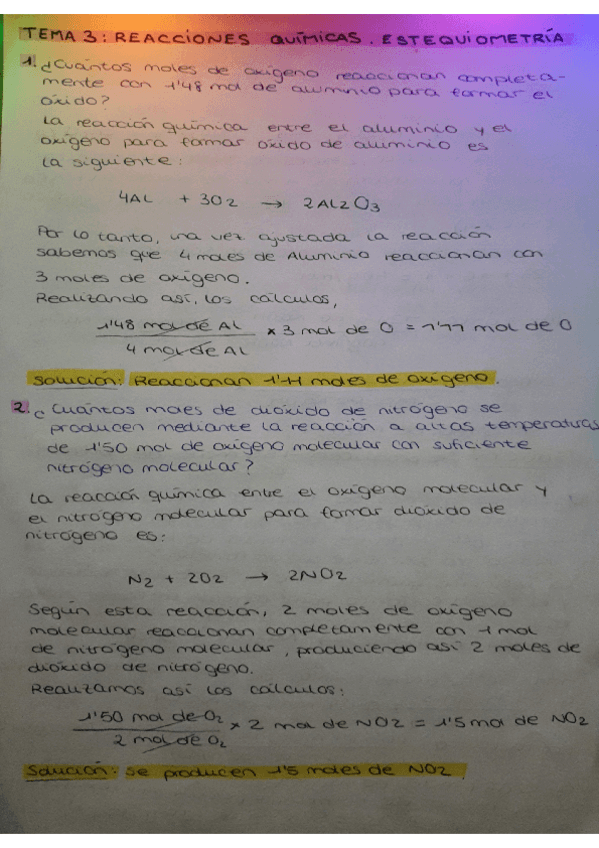 TEMA 3: REACCIONES QUÍMICAS. ESTEQUIOMETRÍA
1. ¿Cuántos moles de oxígeno reaccionan completa-
mente con 1'48 mol de aluminio para formar el
óxido?
La reacción química entre el aluminio y el
oxígeno para formar óxido de aluminio es
la siguiente:
4Al + 3O2 → 2Al2O3
Por lo tanto, una vez ajustada la reacción
sabemos que 4 moles de Aluminio reaccionan con
3 moles de oxígeno.
Realizando así, los cálculos,
1'48 mol de Al
4 mol de Al
x 3 mol de O = 1'11 mol de O
Solución: Reaccionan 1'11 moles de oxígeno.
2. ¿Cuántos moles de dióxido de nitrógeno se
producen mediante la reacción a altas temperaturas
de 1'50 mol de oxígeno molecular con suficiente
nitrógeno molecular?
La reacción química entre el oxígeno molecular y
el nitrógeno molecular para formar dióxido de
nitrógeno es:
N2 + 2O2 → 2NO2
Según esta reacción, 2 moles de oxígeno
molecular reaccionan completamente con 1 mol
de nitrógeno molecular, produciendo así 2 moles de
dióxido de nitrógeno.
Realizamos así los cálculos:
1'50 mol de O2
2 mol de O2
x 2 mol de NO2 = 1'5 mol de NO2
Solución: Se producen 1'5 moles de NO2.